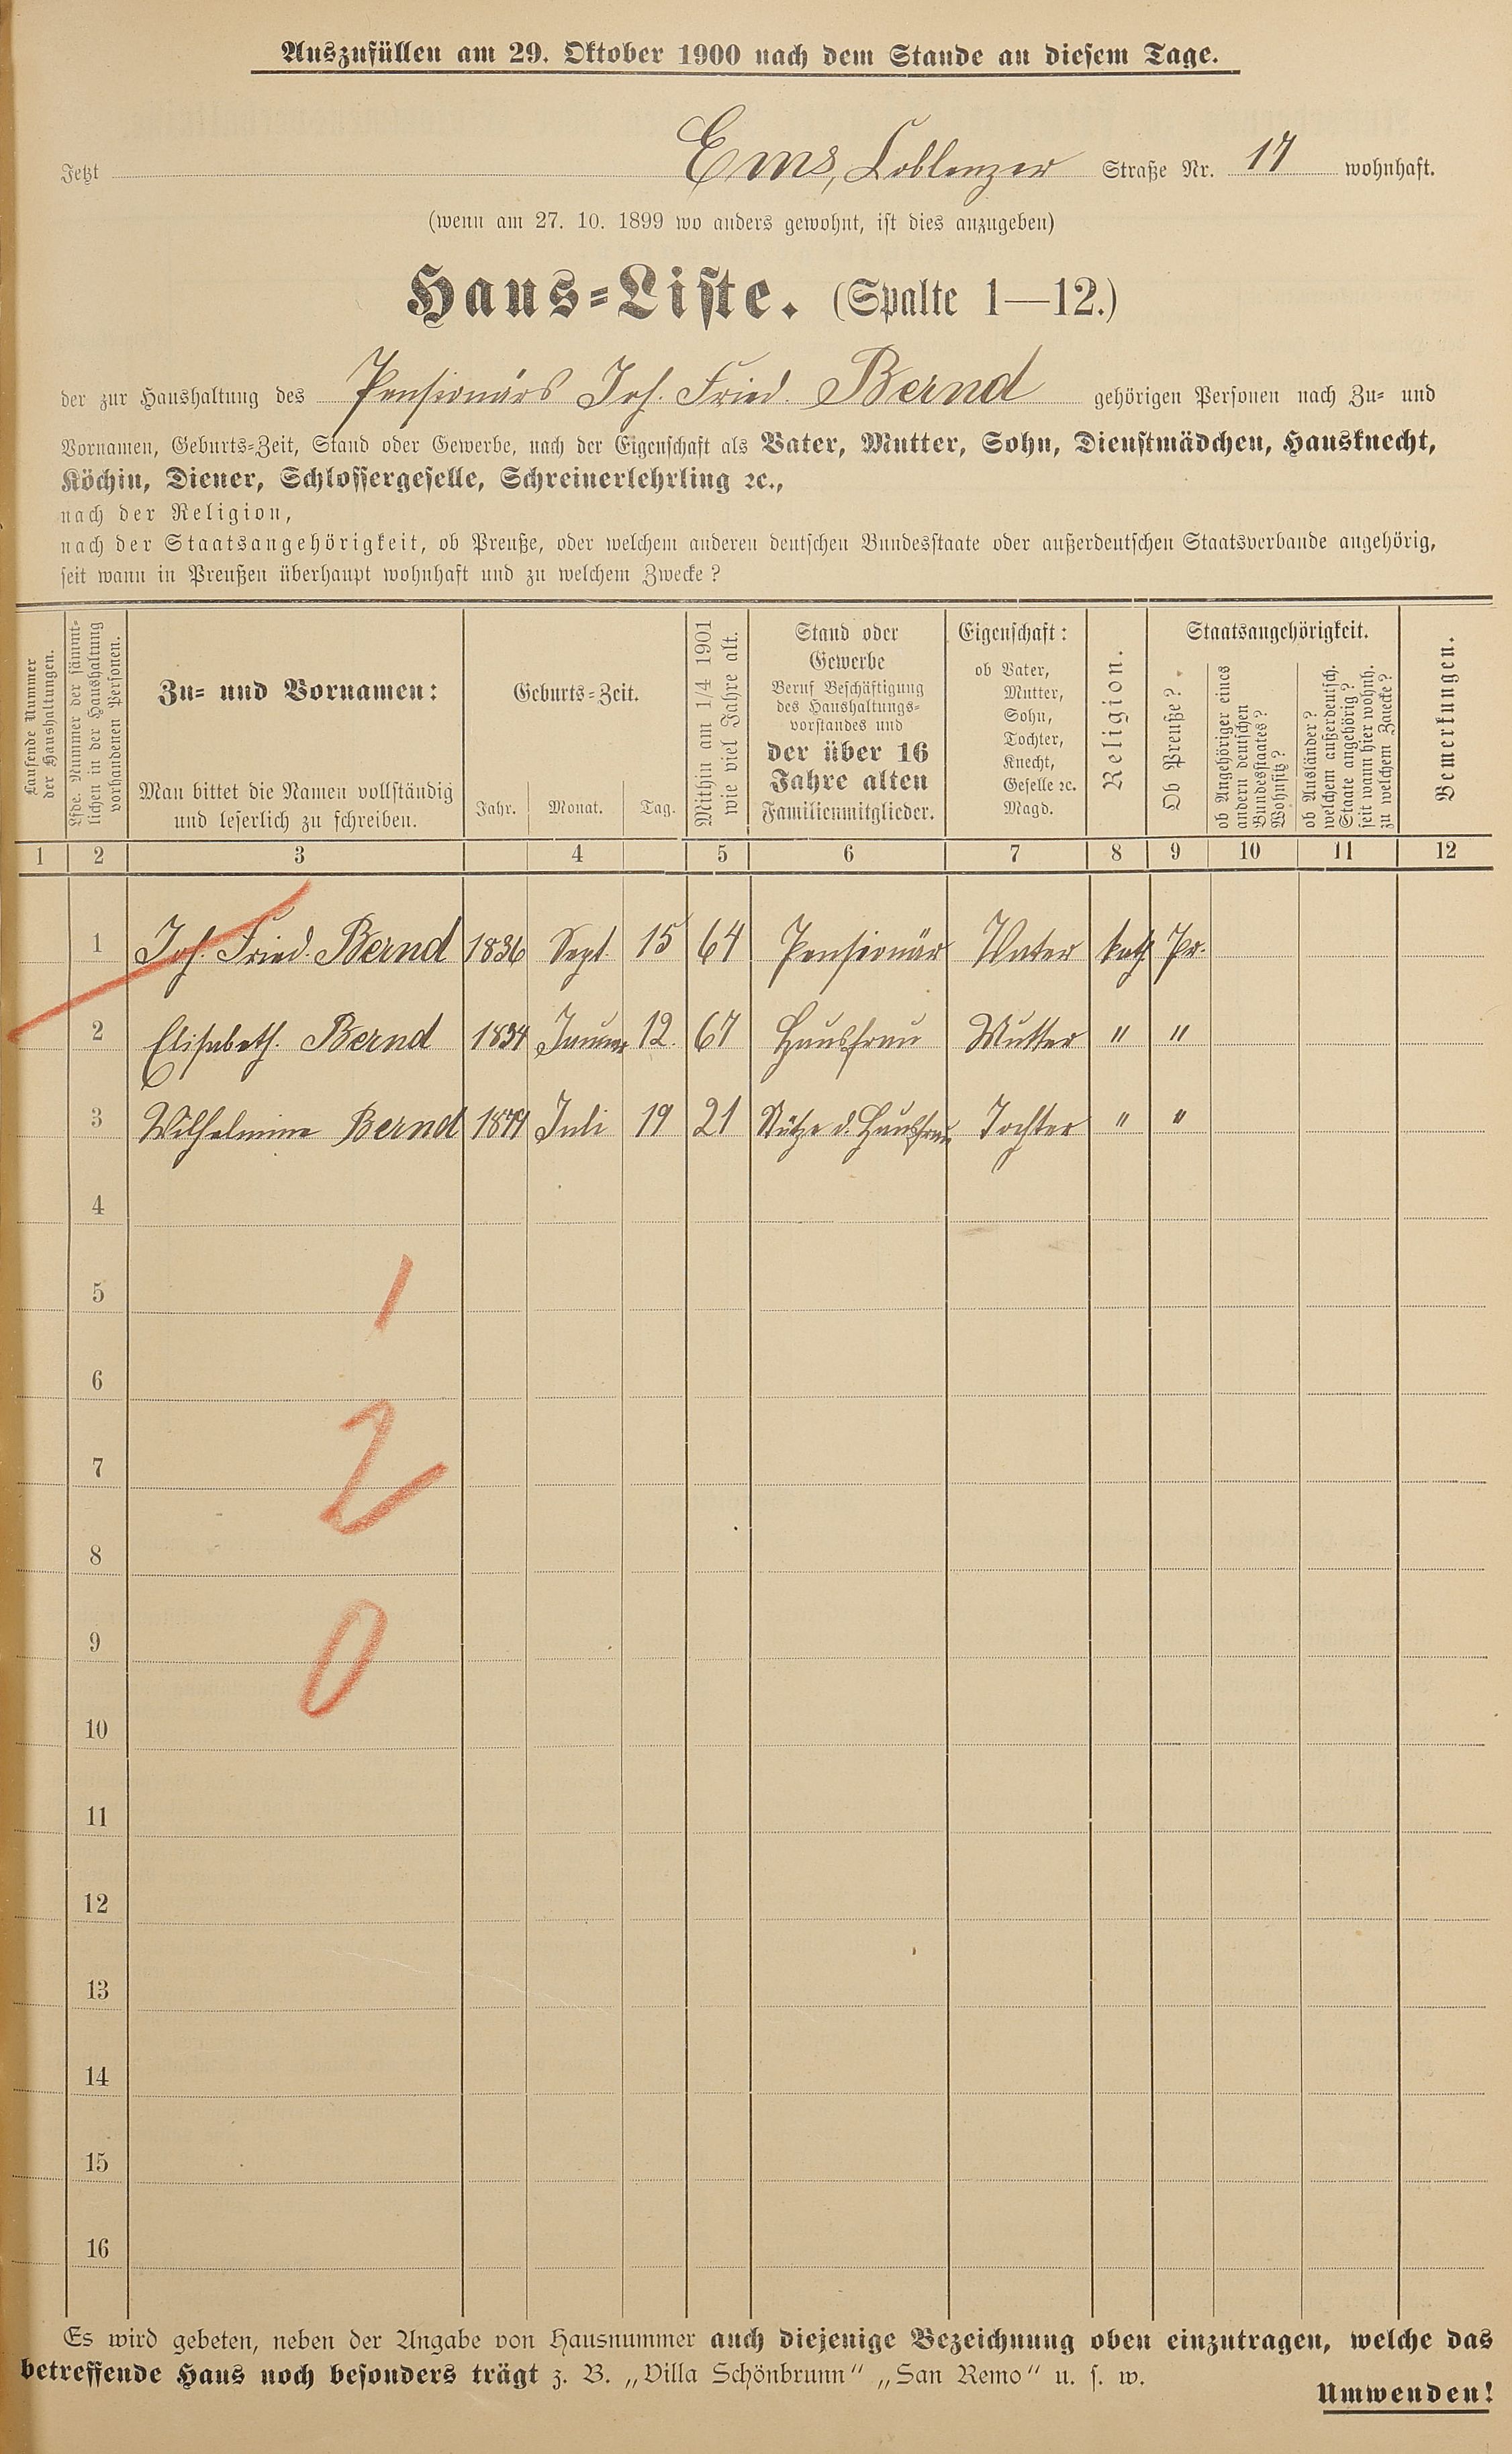 Auszufüllen am 29. Oktober 1900 nach dem Stande an diesem Tage.
Jetzt Ems, Coblenzer Straße Nr. 17 wohnhaft.
(wenn am 27. 10. 1899 wo anders gewohnt, ist dies anzugeben)
Haus-Liste. (Spalte 1—12.)
der zur Haushaltung des Pensionärs Joh. Fried. Bernd gehörigen Personen nach Zu- und
Vornamen, Geburts-Zeit, Stand oder Gewerbe, nach der Eigenschaft als Vater, Mutter, Sohn, Dienstmädchen, Hausknecht,
Köchin, Diener, Schlossergeselle, Schreinerlehrling ⁊c.,
nach der Religion,
nach der Staatsangehörigkeit, ob Preuße, oder welchem anderen deutschen Bundesstaate oder außerdeutschen Staatsverbande angehörig,
seit wann in Preußen überhaupt wohnhaft und zu welchem Zwecke?
Laufende Nummer
der Haushaltungen.
Lfde. Nummer der sämmt-
lichen in der Haushaltung
vorhandenen Personen.
Zu- und Vornamen:
Man bittet die Namen vollständig
und leserlich zu schreiben.
Geburts-Zeit.
Jahr. Monat. Tag.
Mithin am 1/4 1901
wie viel Jahre alt.
Stand oder
Gewerbe
Beruf Beschäftigung
des Haushaltungs-
vorstandes und
der über 16
Jahre alten
Familienmitglieder.
Eigenschaft:
ob Vater,
Mutter,
Sohn,
Tochter,
Knecht,
Geselle ⁊c.
Magd.
Religion.
Staatsangehörigkeit.
Ob Preuße?
ob Angehöriger eines
andern deutschen
Bundesstaates?
Wohnsitz?
ob Ausländer?
welchem außerdeutsch.
Staate angehörig?
seit wann hier wohnh.
zu welchem Zwecke?
Bemerkungen.
1 2 3 4 5 6 7 8 9 10 11 12
1 Joh. Fried. Bernd 1836 Sept. 15 64 Pensionär Vater kath Pr.
2 Elisabeth. Bernd 1834 Januar 12. 67 Hausfrau Mutter " "
3 Wilhelmine Bernd 1879 Juli 19 21 Stütze d. Hausfrau Tochter " "
4
5
1
6
2
7
8
9
0
10
11
12
13
14
15
16
Es wird gebeten, neben der Angabe von Hausnummer auch diejenige Bezeichnung oben einzutragen, welche das
betreffende Haus noch besonders trägt z. B. „Villa Schönbrunn" „San Remo" u. s. w.
Umwenden!